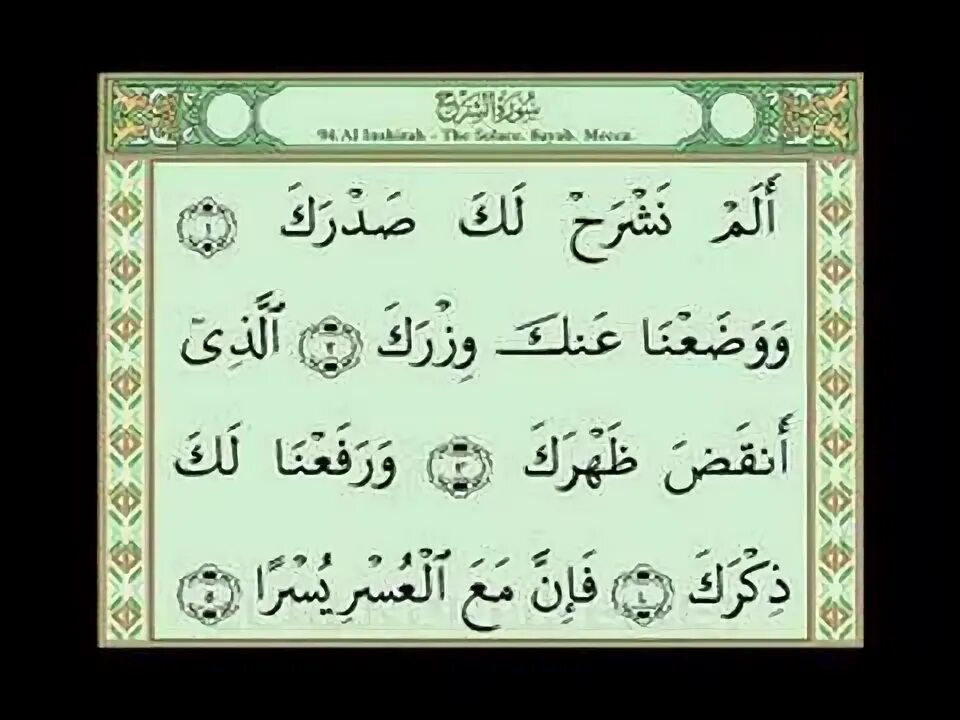 سورة الشرح
94.Al Inshirah - The Solace, Bayah, Mecca
أَلَمْ نَشْرَحْ لَكَ صَدْرَكَ ١
وَوَضَعْنَا عَنكَ وِزْرَكَ ٢ ٱلَّذِىٓ
أَنقَضَ ظَهْرَكَ ٣ وَرَفَعْنَا لَكَ
ذِكْرَكَ ٤ فَإِنَّ مَعَ ٱلْعُسْرِ يُسْرًا ٥